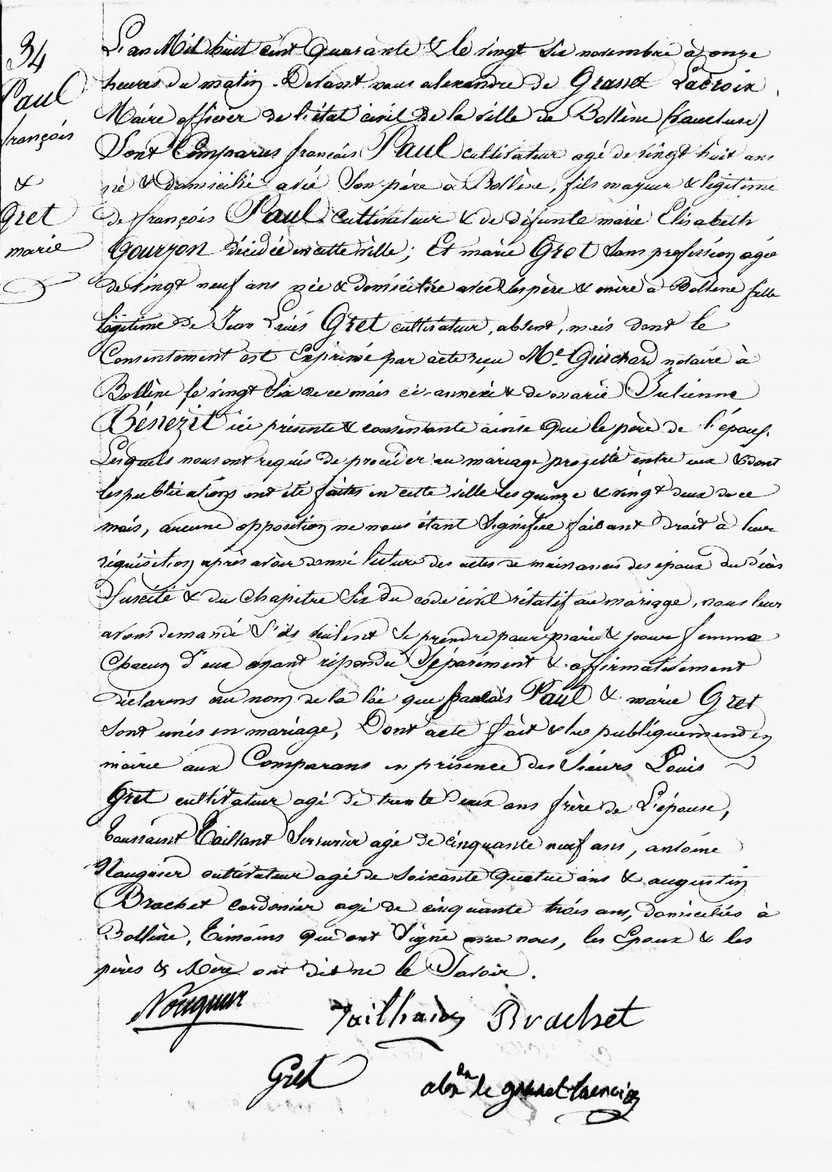 34
Paul
françois
&
Gret
marie
L'an Mil huit cent Quarante & le vingt six novembre à onze
heures du matin. Devant nous alexandre de Granet Lacroix
Maire officier de l'état civil de la ville de Bollène (Vaucluse)
Sont Comparus françois Paul cultivateur agé de vingt huit ans
né & domicilié avec Son père à Bollène, fils majeur & légitime
de françois Paul cultivateur & de défunte marie Elisabeth
Gourjon décédée en cette ville; Et marie Gret Sans profession agée
de vingt neuf ans née & domiciliée avec ses père & mère à Bollène fille
légitime de Jean Louis Gret cultivateur, absent, mais dont le
Consentement est Exprimé par acte reçu Me. Guichard notaire à
Bollène le vingt six de ce mois ci-annexé & de marie Julienne
Bénezit ici présente & consentante ainsi que le père de l'époux.
Lesquels nous ont requis de procéder au mariage projetté entre eux & dont
les publications ont été faites en cette ville les quinze & vingt deux de ce
mois, aucune opposition ne nous étant Signifiée faisant droit à leur
réquisition après avoir donné lecture des actes de naissances des époux du décès
Suscité & du chapitre Six du code civil rélatif au mariage, nous leur
avons demandé S'ils veulent Se prendre pour mari & pour femme
Chacun d'eux ayant répondu Séparément & affirmativement
déclarons au nom de la loi que françois Paul & marie Gret
Sont unis en mariage, Dont acte fait & lu publiquement en
mairie aux Comparans en présence des Sieurs Louis
Gret cultivateur agé de trente deux ans frère de L'épouse,
Toussaint Taillant Serrurier agé de cinquante neuf ans, antoine
Nouguier cultivateur agé de soixante quatre ans & augustin
Brachet cordonier agé de cinquante trois ans, domiciliés à
Bollène, Témoins qui ont Signé avec nous, les Epoux & les
pères & Mère ont dit ne le Savoir.
Nouguier Brachet
Gret alexdre de granet-lacroix